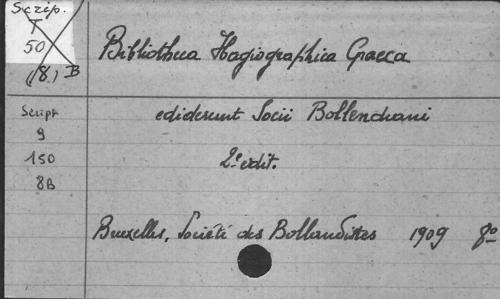 Scrip.
T
50
(8.) B
Bibliotheca Hagiographica Graeca
Script
9
150
8B
ediderunt Socii Bollendiani
2e edit.
Bruxelles, Société des Bollandistes 1909 8o